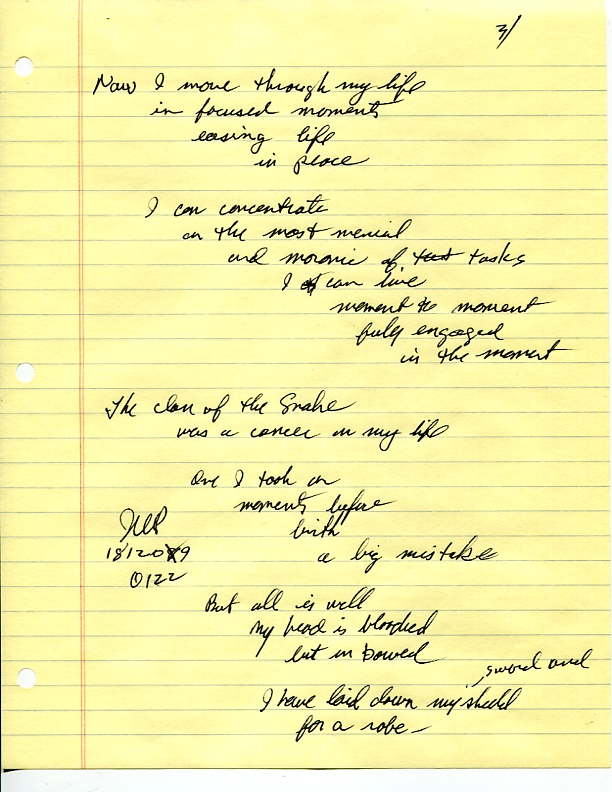 3/
Now I move through my life
in focused moments
easing life
in peace
I can concentrate
on the most menial
and moronic of tasks
I can live
moment to moment
fully engaged
in the moment
The clan of the Snake
was a cancer on my life
One I took on
moments before
birth
a big mistake
18/12089
0122
But all is well
My head is bloodied
but unbowed
I have laid down my, sword and shield
for a robe —